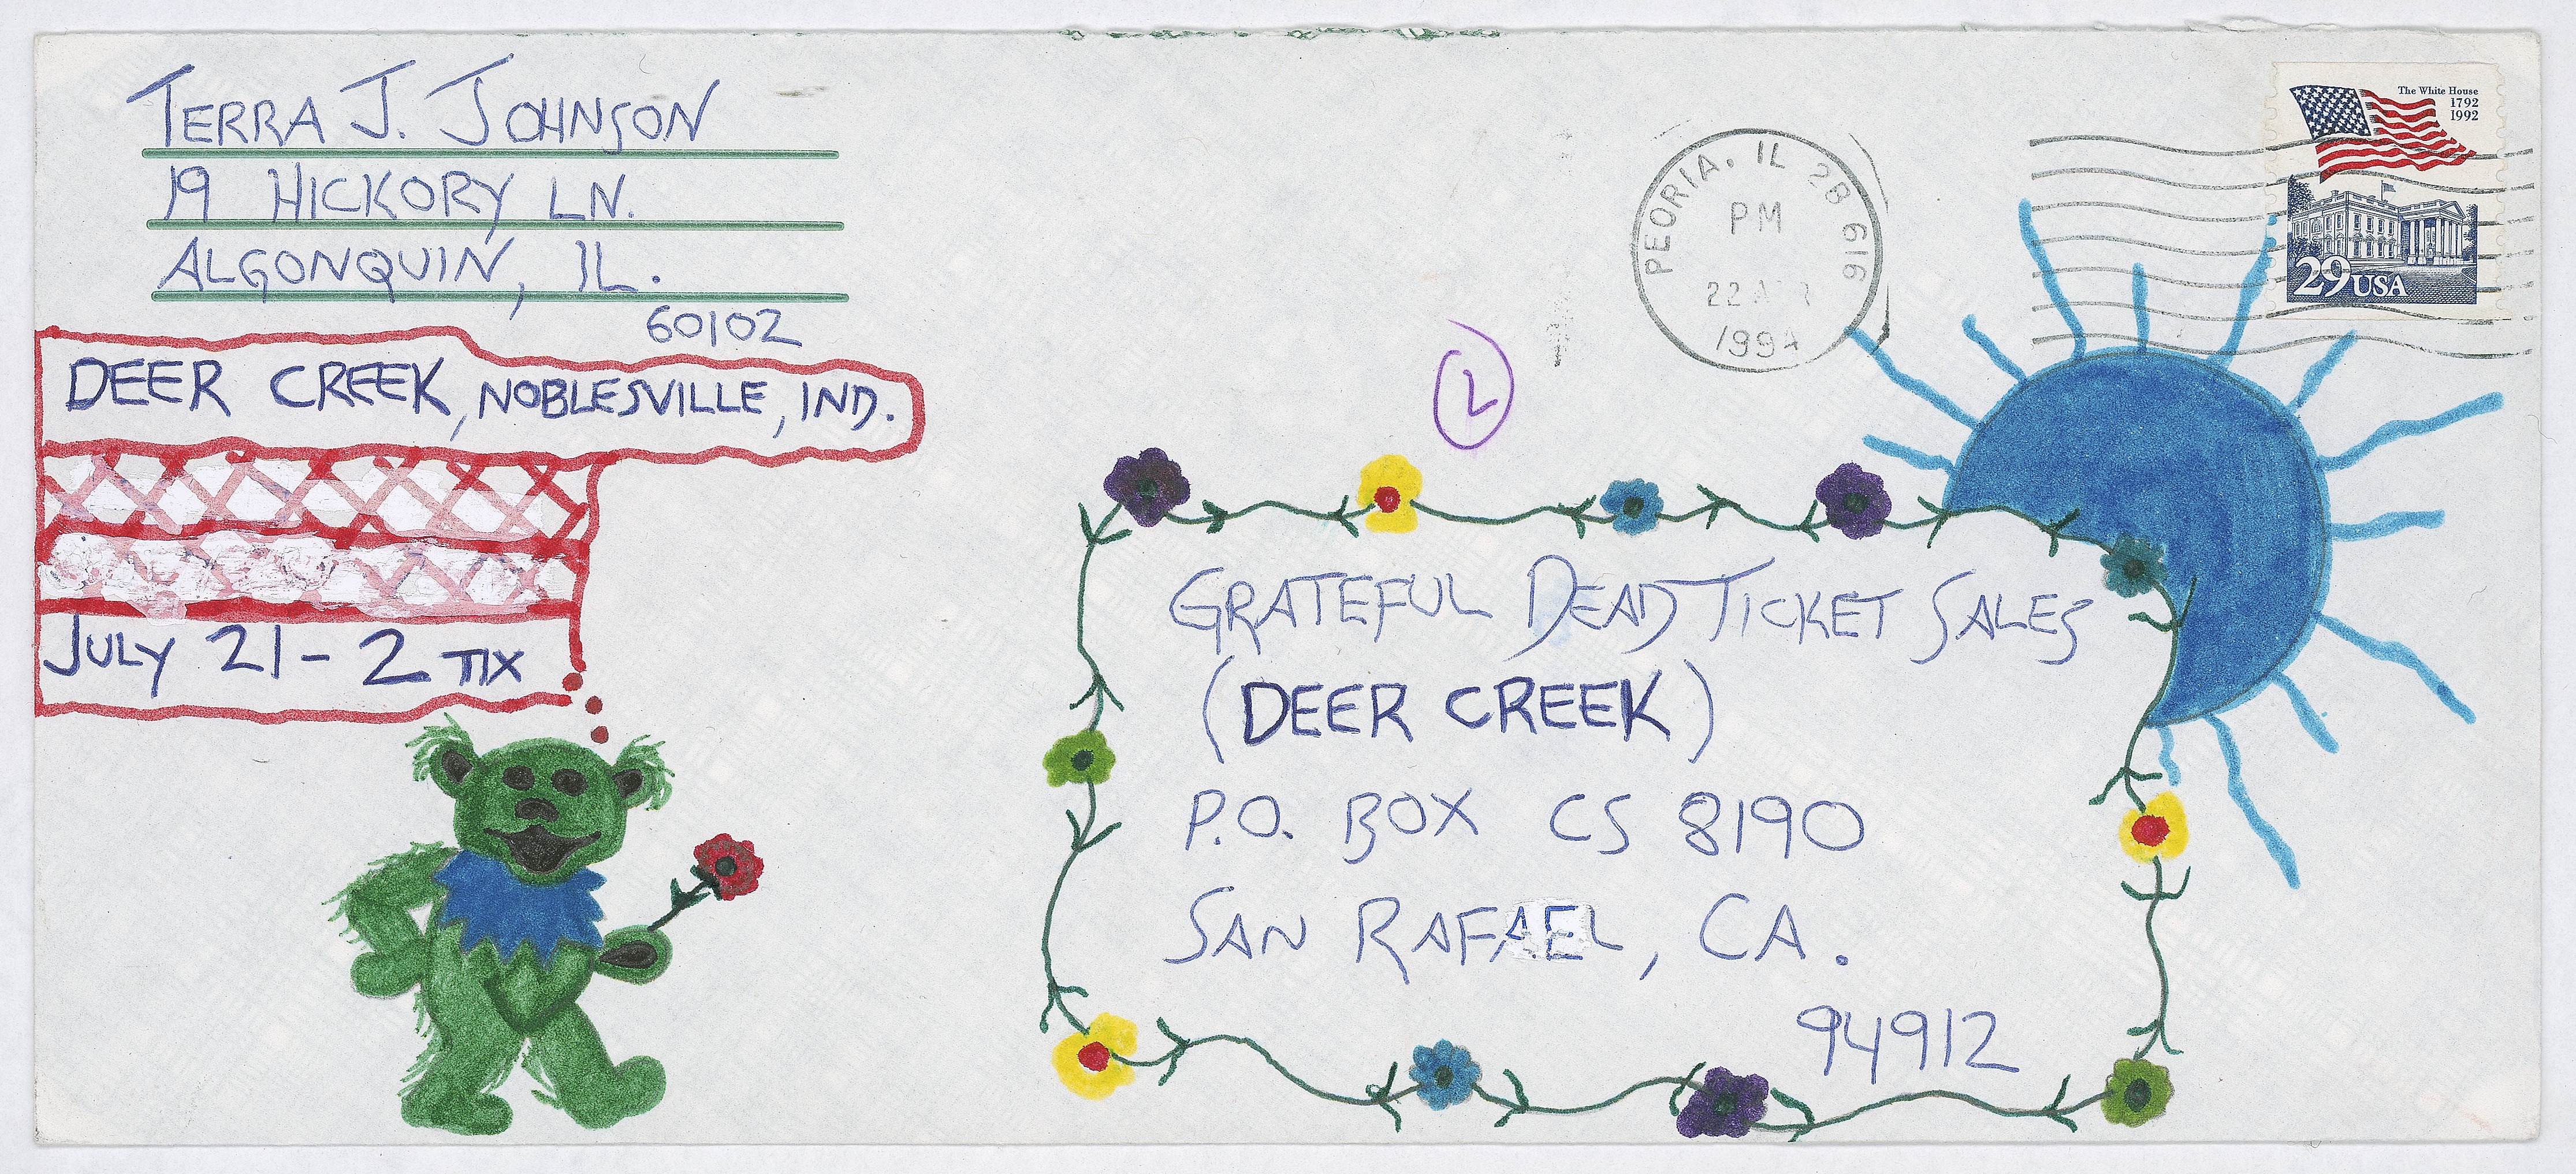 TERRA J. JOHNSON
19 HICKORY LN.
ALGONQUIN, IL.
60102
DEER CREEK, NOBLESVILLE, IND.
JULY 21 - 2 TIX
PEORIA, IL 2B 616
PM
22
1994
The White House
1792
1992
29 USA
2
GRATEFUL DEAD TICKET SALES
(DEER CREEK)
P.O. BOX CS 8190
SAN RAFAEL, CA.
94912